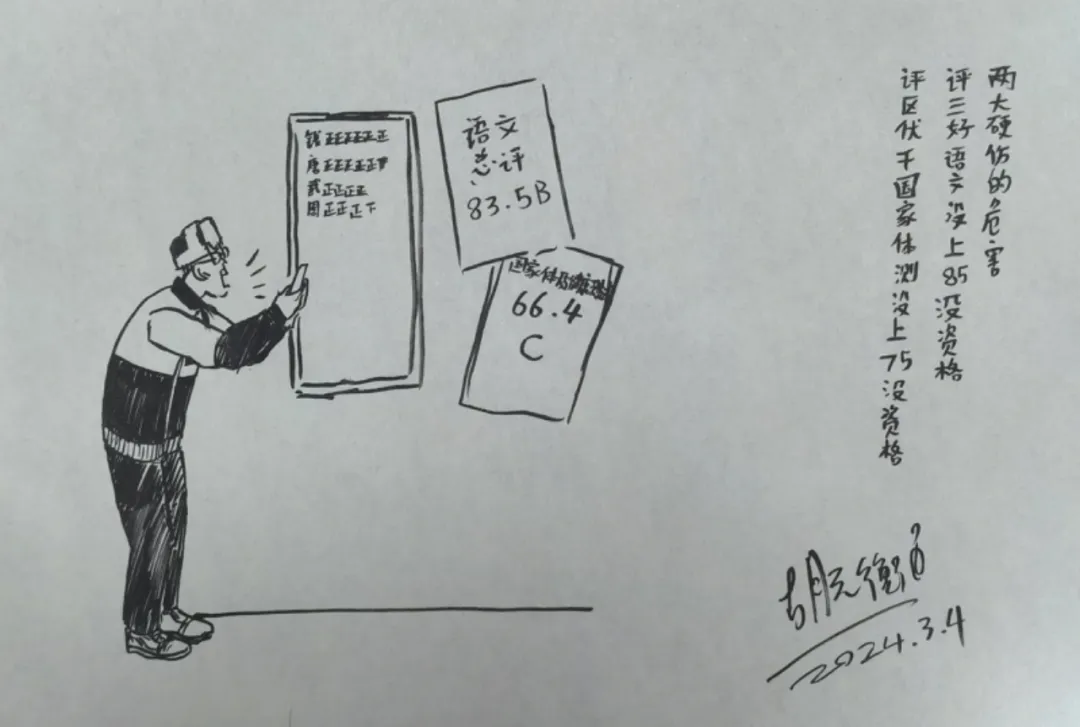 钱正正正正正
唐正正正正
正正正正
周正正正下
语文
总评
83.5B
国家体
66.4
C
两大硬伤的危害
评三好语文没上85没资格
评区优干国家体测没上75没资格
胡元衡
2024.3.4